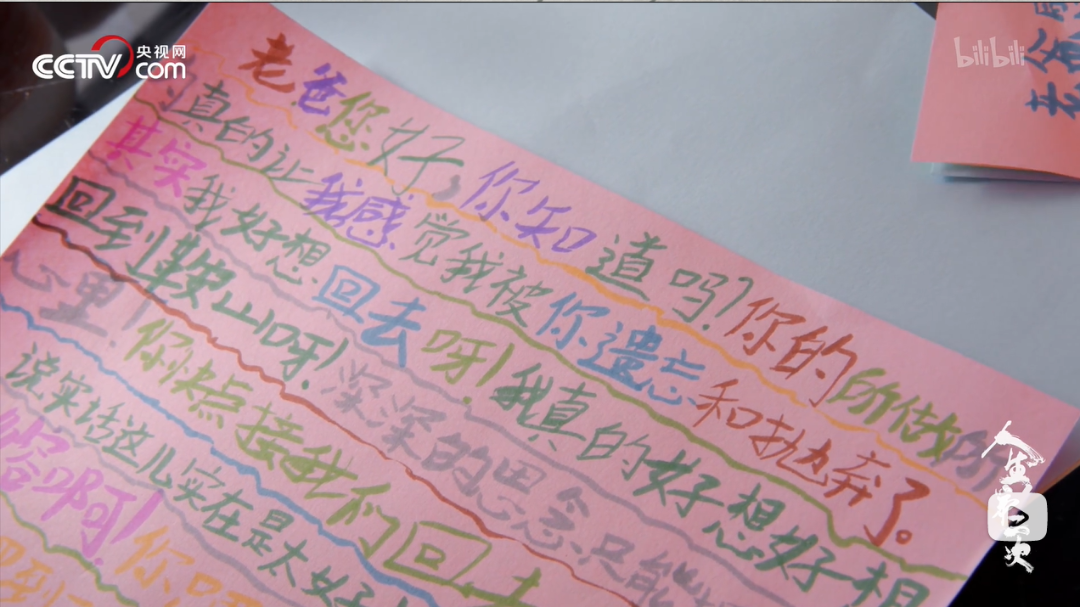 CCTV 央视网
.com
bilibili
老爸
老爸您好,你知道吗?你的所做所
真的让我感觉我被你遗忘和抛弃了。
其实我好想回去呀!我真的好想好想
回到鞍山呀!深深的思念只能
心里!你快点接我们回去
说实话这儿实在是太好
啊!你
人生第二次